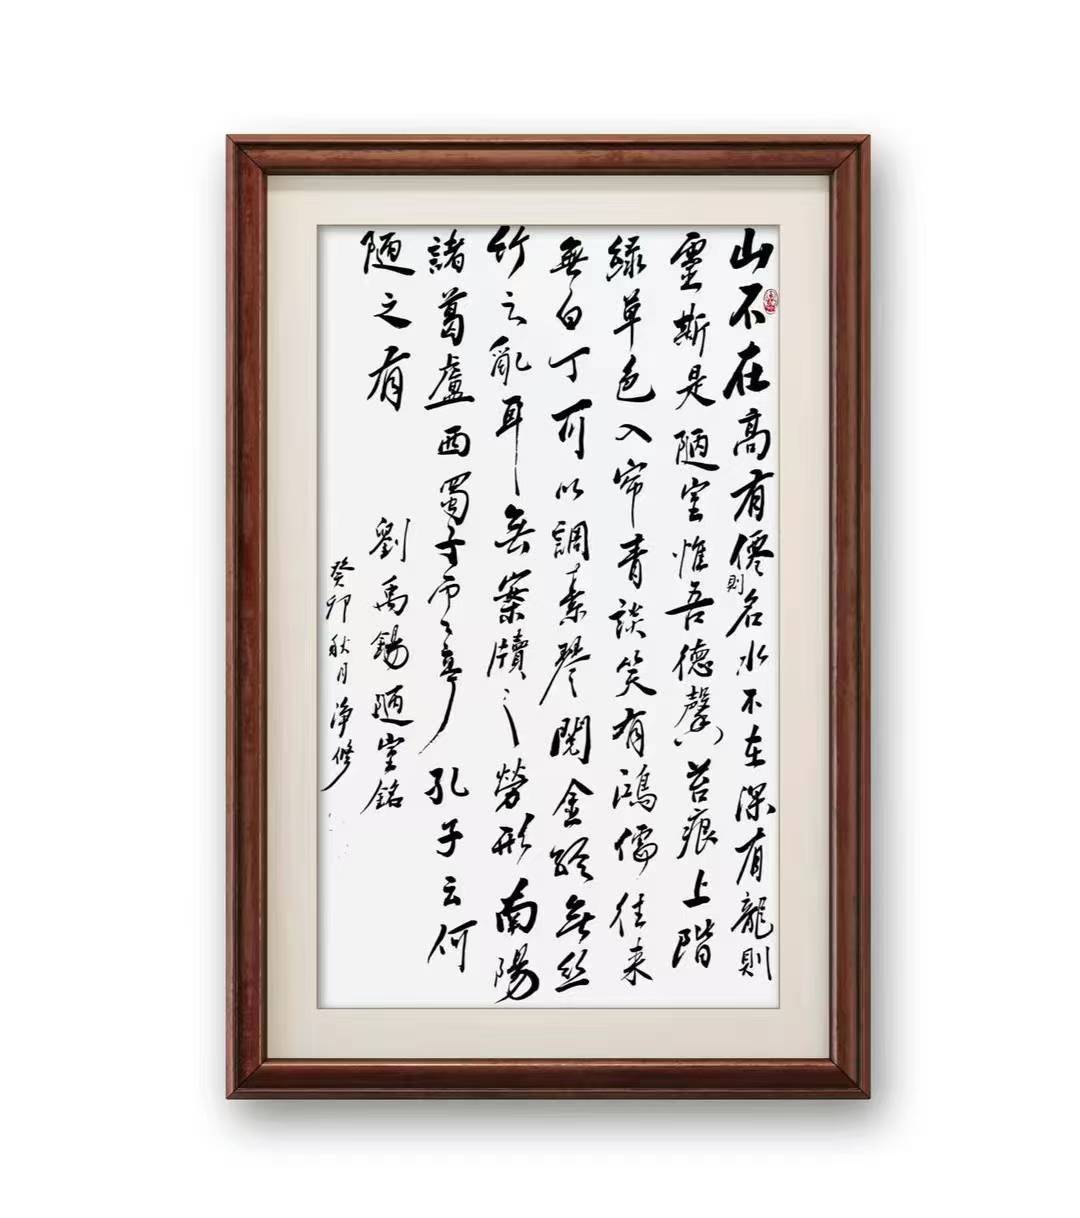 山不在高有僊則名水不在深有龍則
靈斯是陋室惟吾德馨苔痕上階
綠草色入帘青談笑有鴻儒往来
無白丁可以調素琴閱金經無丝
竹之亂耳無案牘之勞形南陽
諸葛盧西蜀子雲亭孔子云何
陋之有
劉禹錫陋室銘
癸卯秋月淨修